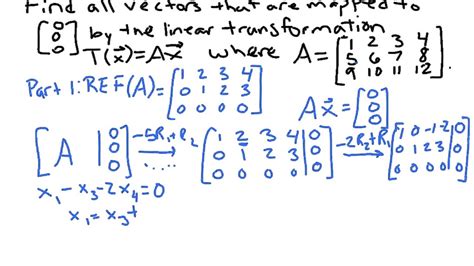 Find all vectors that are mapped to
[0 0 0] by the linear transformation
T(x⃗)=Ax⃗ where A=[1 2 3 4
5 6 7 8
9 10 11 12].
Part 1: REF(A)=[1 2 3 4
0 1 2 3
0 0 0 0]
Ax⃗=[0 0 0]
[A | 0 0 0] -5R₁+R₂ ..... [1 2 3 4 | 0
0 1 2 3 | 0
0 0 0 0 | 0] -2R₂+R₁ [1 0 -1 -2 | 0
0 1 2 3 | 0
0 0 0 0 | 0]
x₁-x₃-2x₄=0
x₁=x₃+